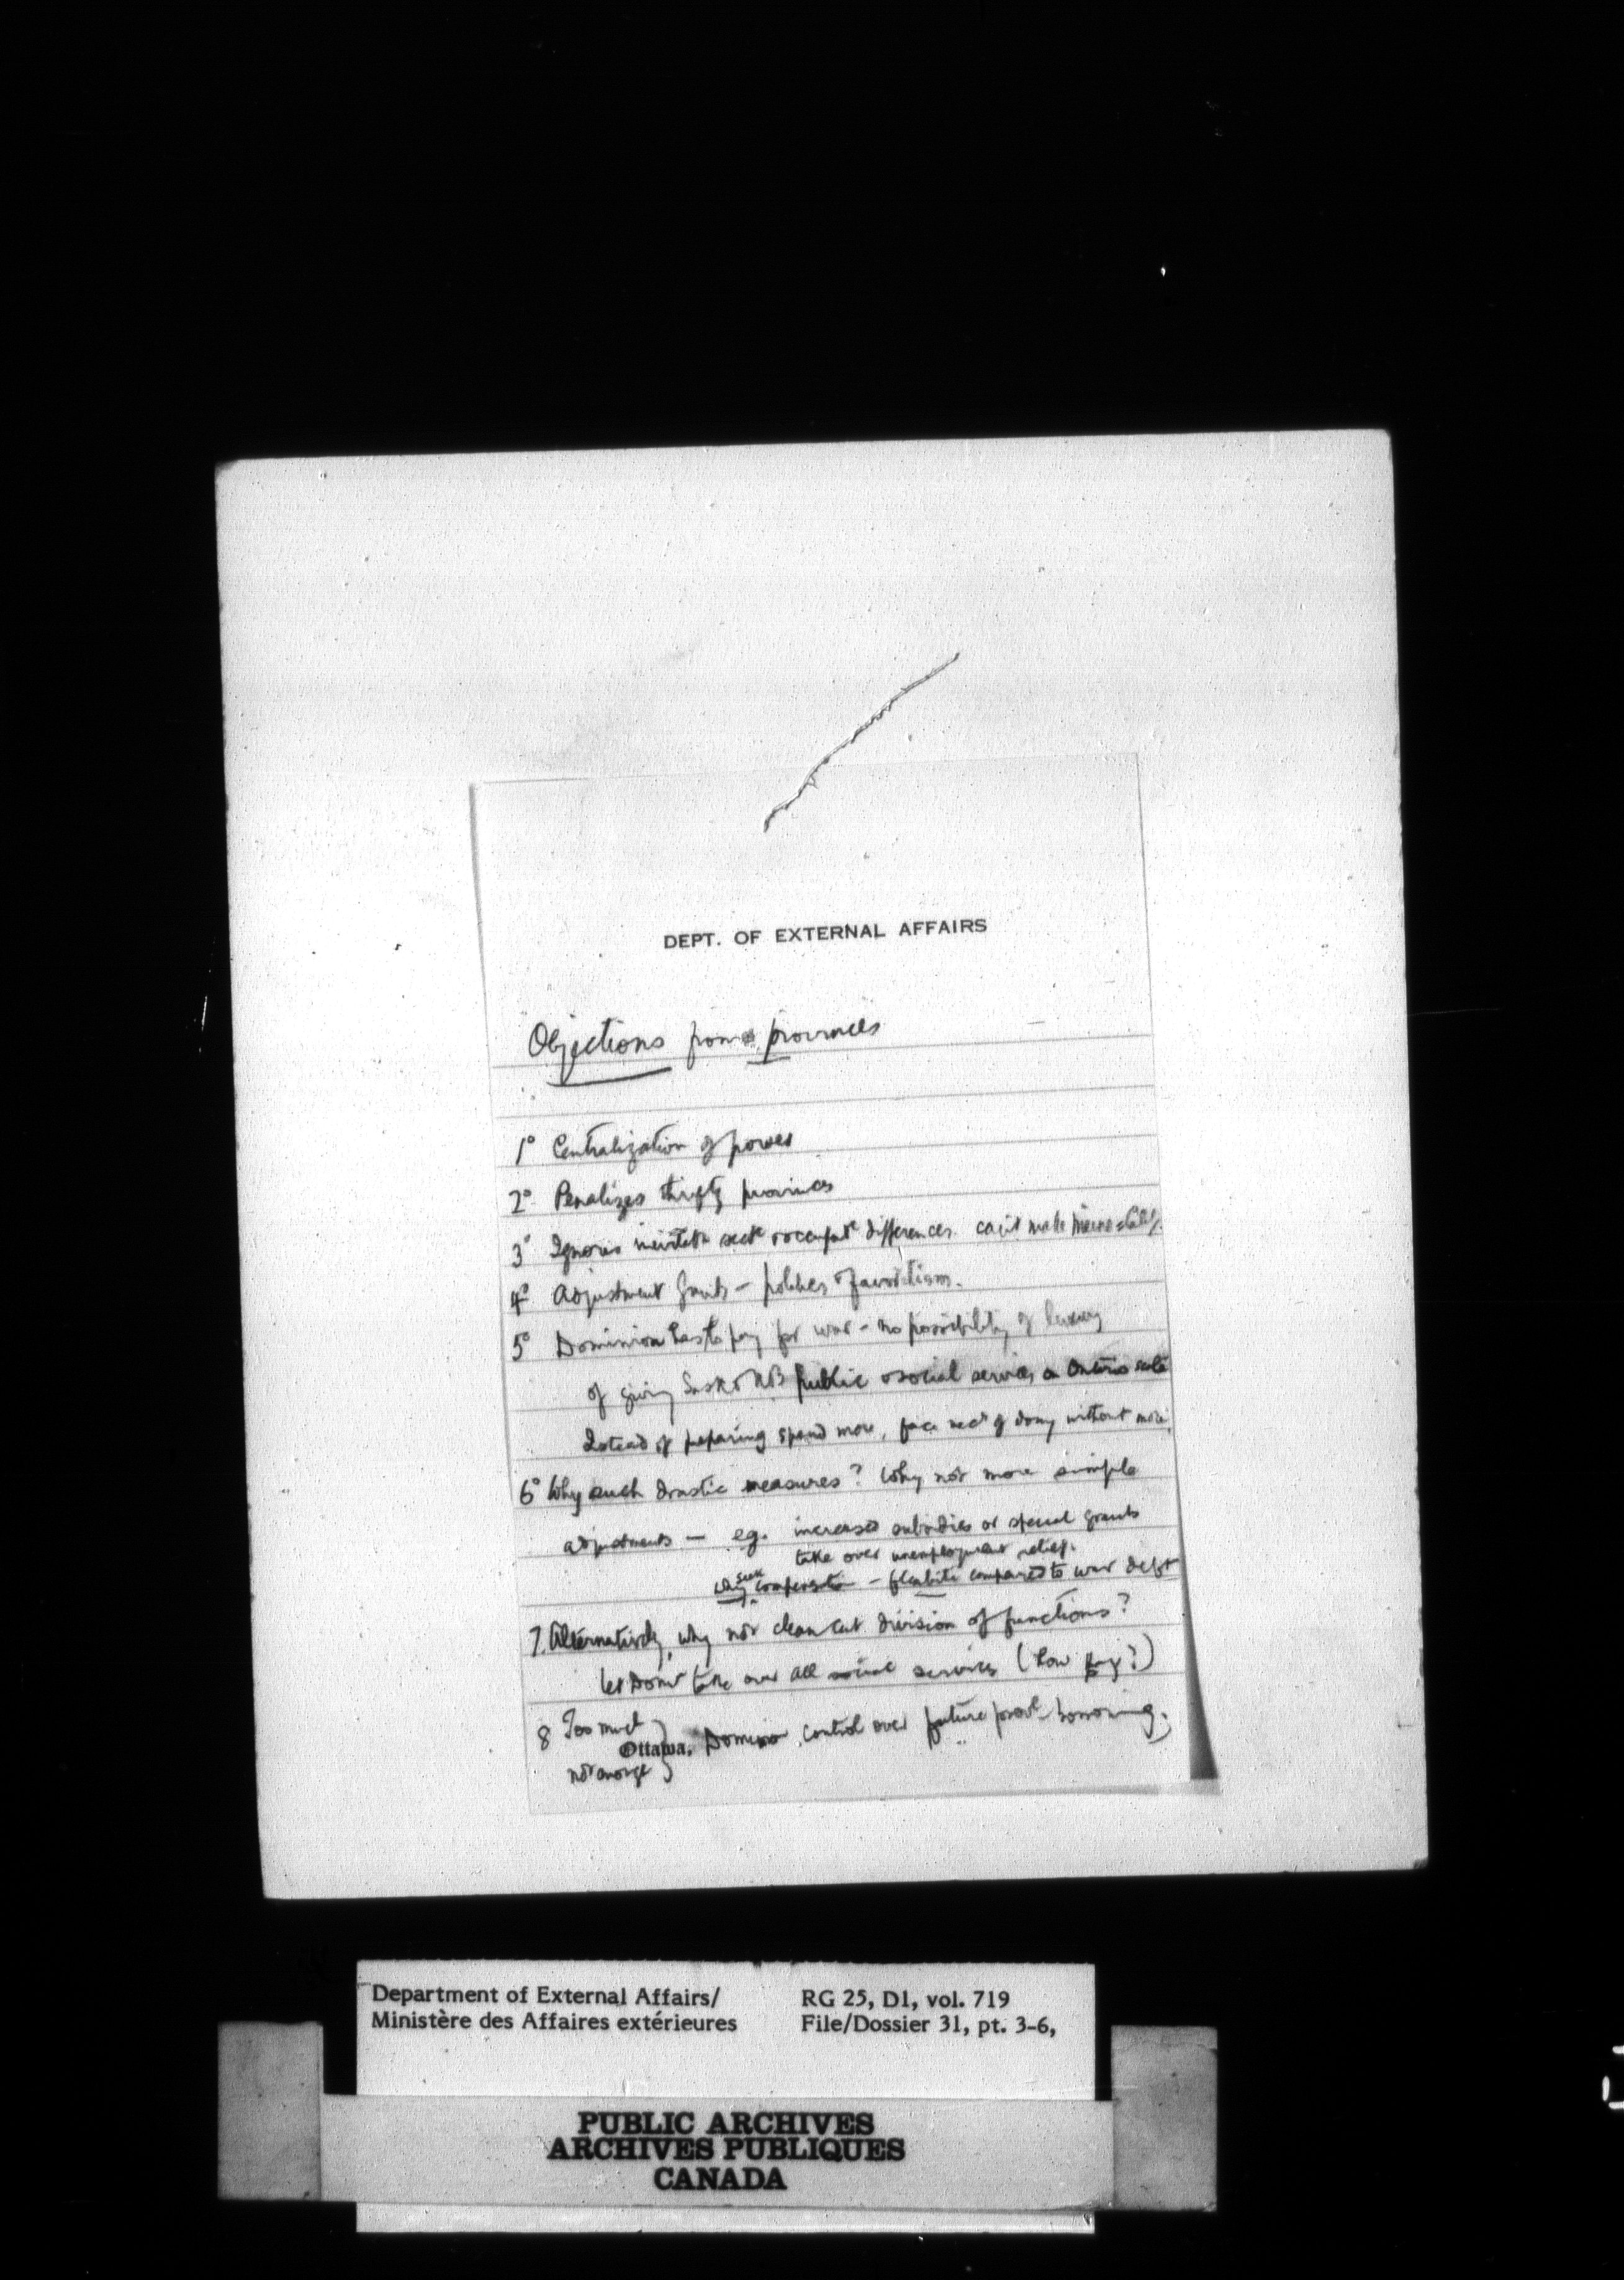 DEPT. OF EXTERNAL AFFAIRS
Objections from provinces
1° Centralization of power
2° Penalizes thrifty provinces
3° Ignores sect occupatl differences. can't make
4° Adjustment Grants – politics favoritism.
5° Dominion has to pay for war – no possibility of luxury
of giving Sask & NB public & social services on Ontario scale
Instead of preparing spend more, face necy of doing without more
6° Why such drastic measures? Why not more simple
adjustments – eg. increased subsidies or special grants
take over unemployment relief.
seek
Why compensate – fleabite compared to war debt
7. Alternatively, why not clean cut division of functions?
let Domn take over all social services (how pay?)
8 Too much
Ottawa. Dominion control over future provl borrowing.
not enough
Department of External Affairs/
Ministère des Affaires extérieures
RG 25, D1, vol. 719
File/Dossier 31, pt. 3-6,
PUBLIC ARCHIVES
ARCHIVES PUBLIQUES
CANADA